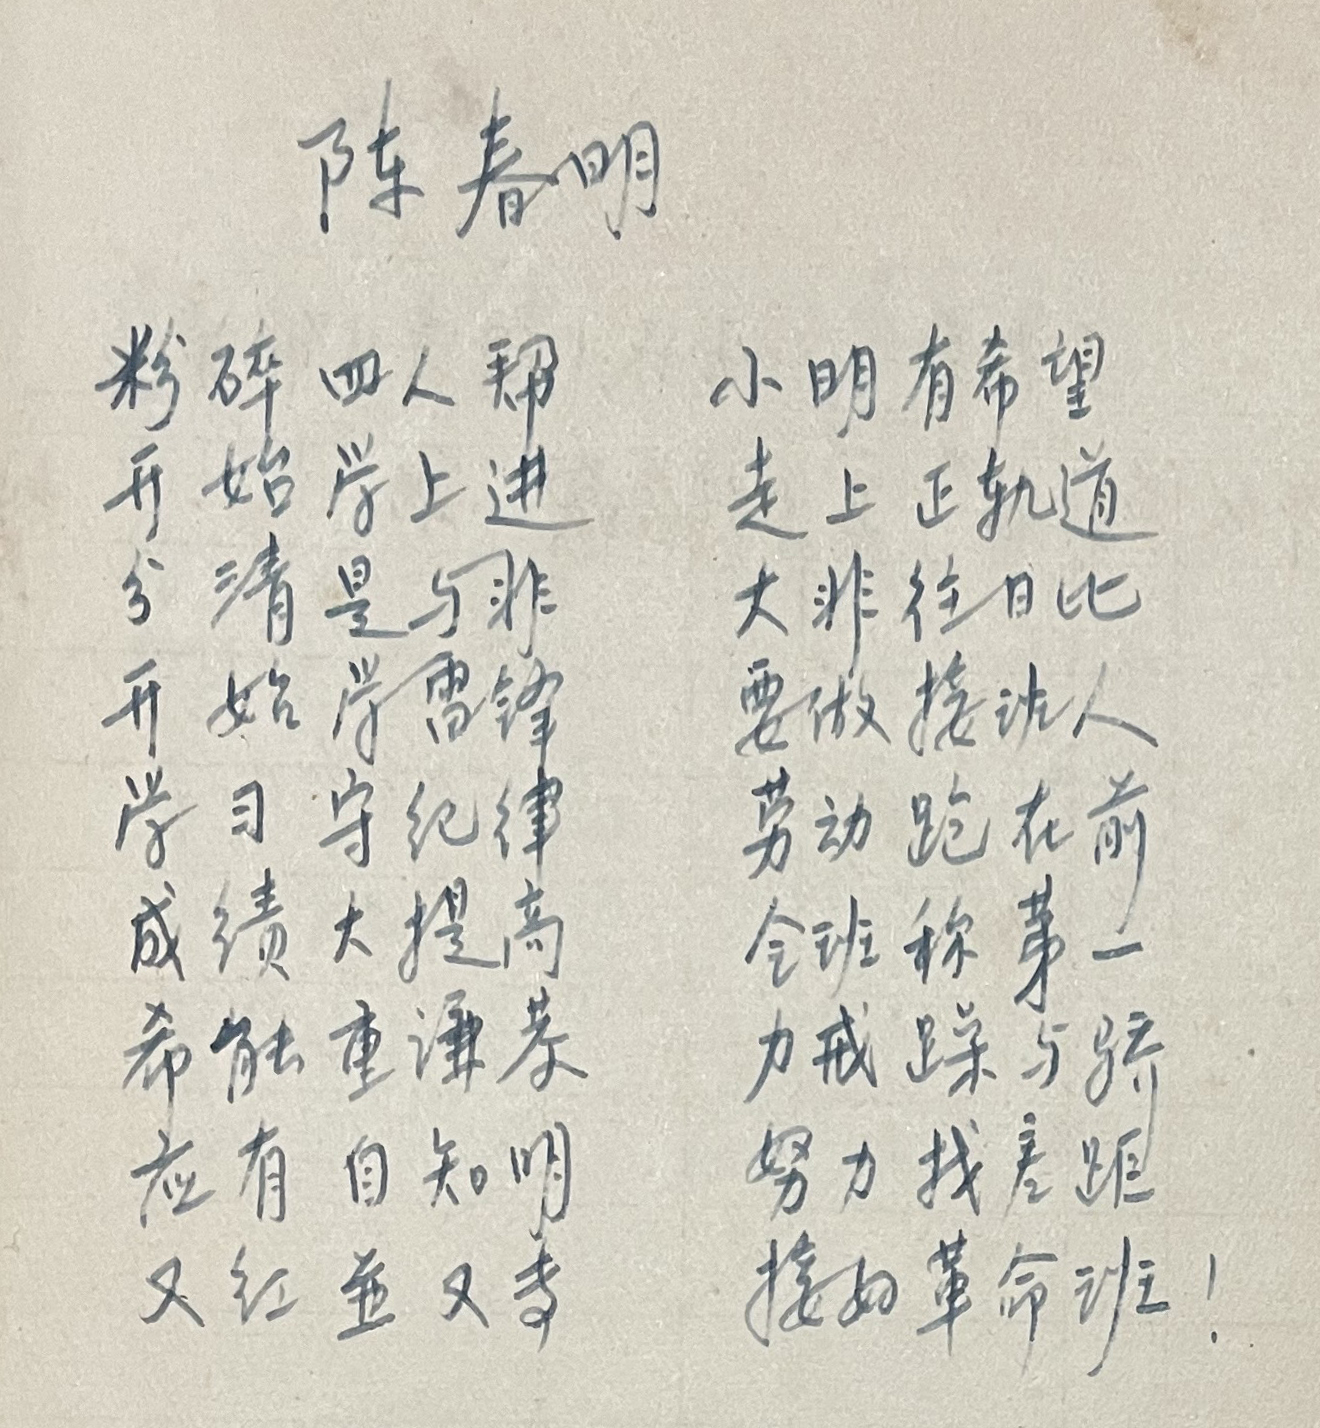 陈春明
粉碎四人帮 小明有希望
开始学上进 走上正轨道
分清是与非 大非往日比
开始学雷锋 要做接班人
学习守纪律 劳动跑在前
成绩大提高 全班称第一
希能重谦恭 力戒躁与骄
应有自知明 努力找差距
又红並又专 接好革命班！